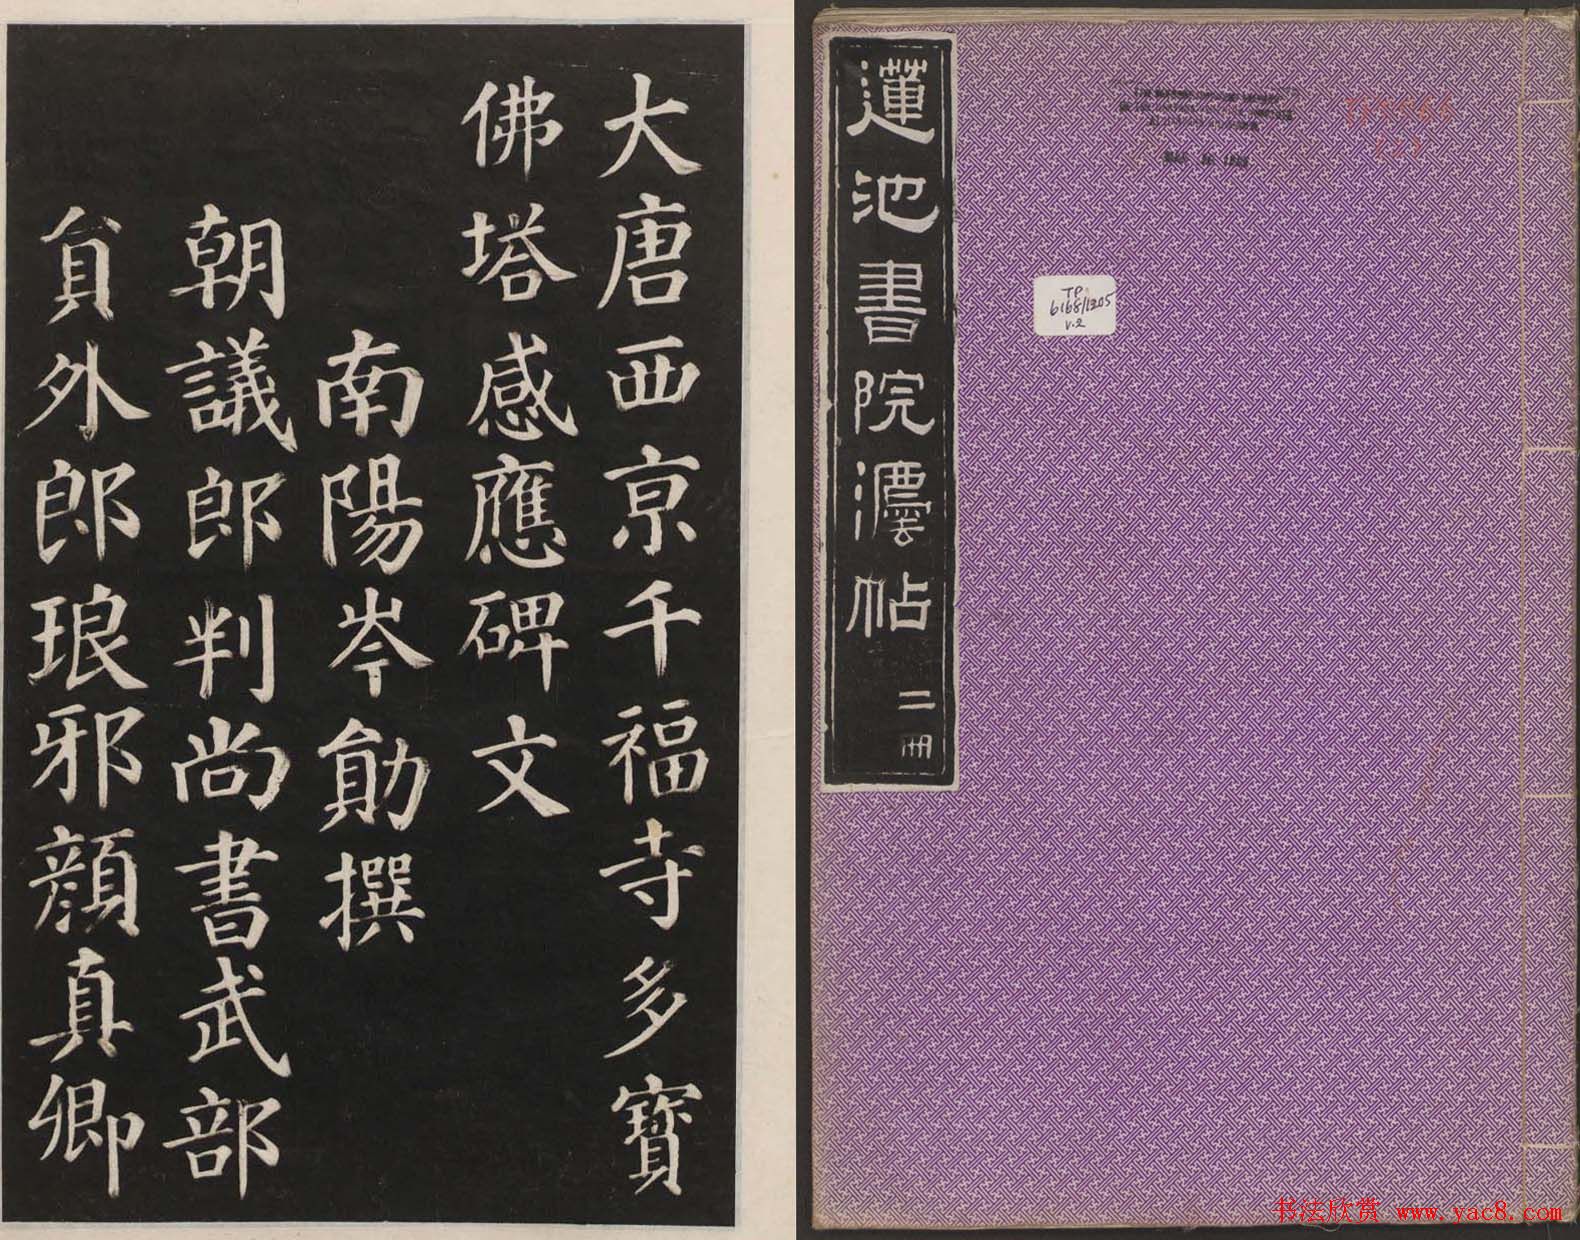 大唐西亰千福寺多寶
佛塔感應碑文
南陽岑勛撰
朝議郎判尚書武部
貟外郎琅邪顏真卿
蓮池書院灋帖
二冊
TP
6168/1305
v.2
书法欣赏 www.yac8.com